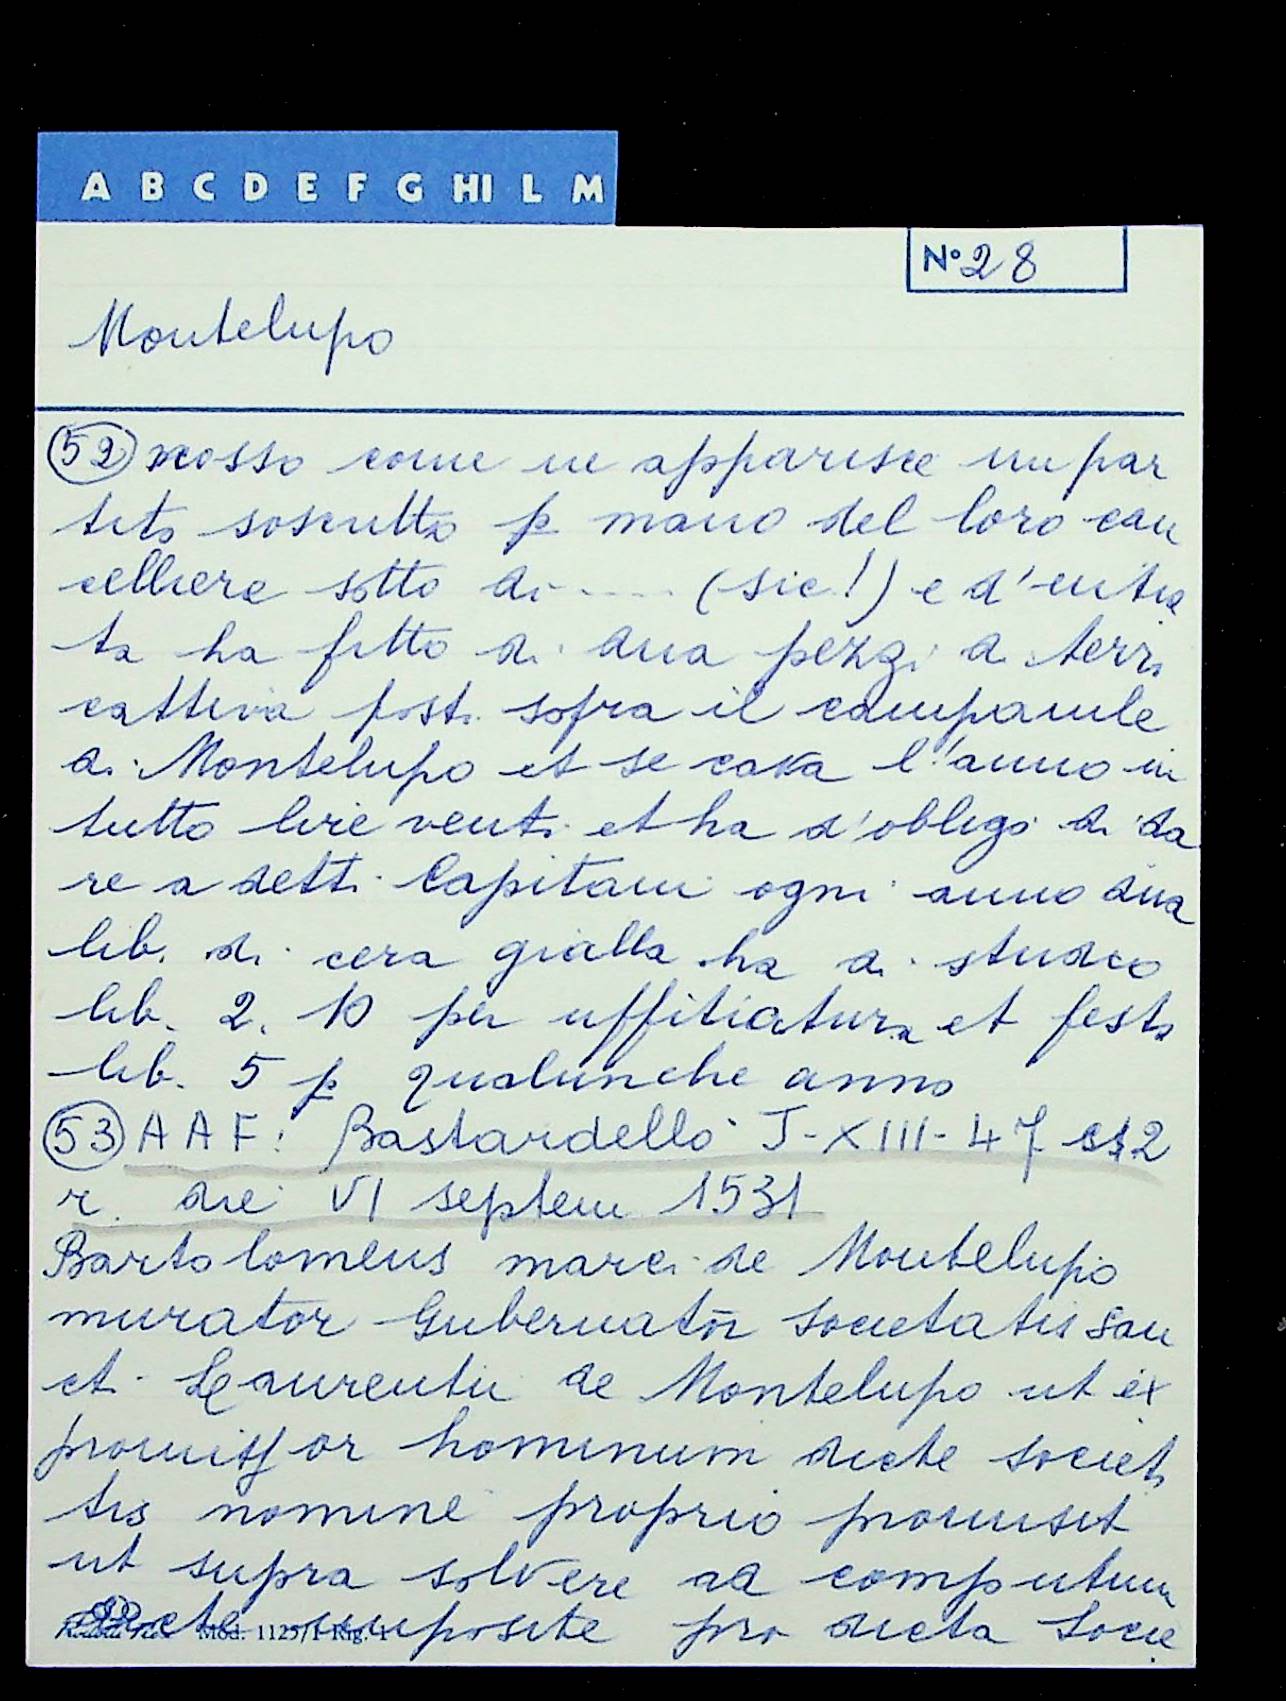 A B C D E F G HI L M
N° 28
Montelupo
(52) mosso come ne apparisce un par
tito soscritto p mano del loro can
celliere sotto di .... (sic!) e d'entra
ta ha fitto di dua pezzi di terra
cattiva posti sopra il campanile
di Montelupo et se cava l'anno in
tutto lire venti et ha d'obligo di da
re a detti Capitani ogni anno dua
lib. di cera gialla ha di studio
lib. 2. 10 per uffitiatura et festa
lib. 5 p qualunche anno
(53) AAF: Bastardello J-XIII-47 2
r. die VI septem 1531
Bartolomeus marci de Montelupo
murator Gubernator societatis san
cti Laurentii de Montelupo ut ex
promissor hominum dicte societa
tis nomine proprio promisit
ut supra solvere ad computum
dicte imposite pro dicta socie
Mod. 1125/1 Rig. 1